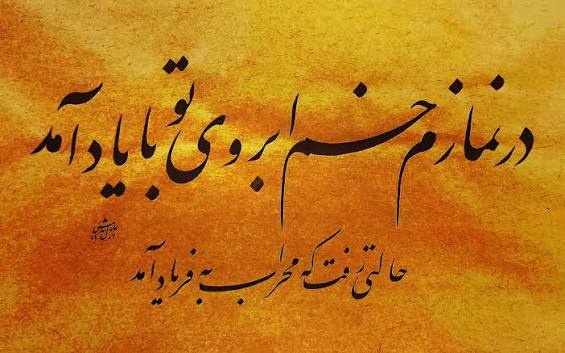 در نمازم خم ابروی تو با یاد آمد
حالتی رفت که محراب به فریاد آمد